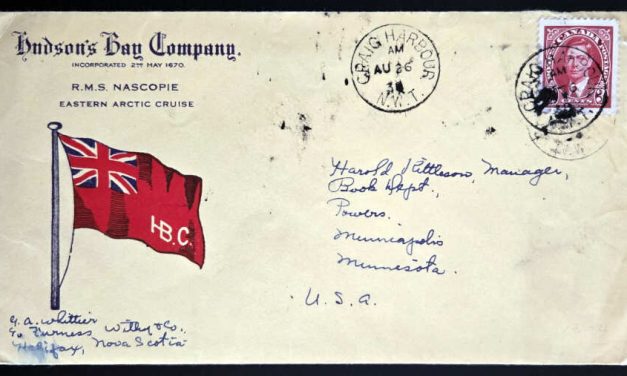 Hudson's Bay Company.
INCORPORATED 2ND MAY 1670.
R.M.S. NASCOPIE
EASTERN ARCTIC CRUISE
CRAIG HARBOUR
AM
AU 26
N.W.T.
CANADA POSTAGE
CENTS
CRAIG
AM
HBC.
Harold Kittleson, Manager,
Book Dept.,
Powers.
Minneapolis
Minnesota.
U.S.A.
G. A. Whittier
Furness Withy & Co.,
Halifax, Nova Scotia